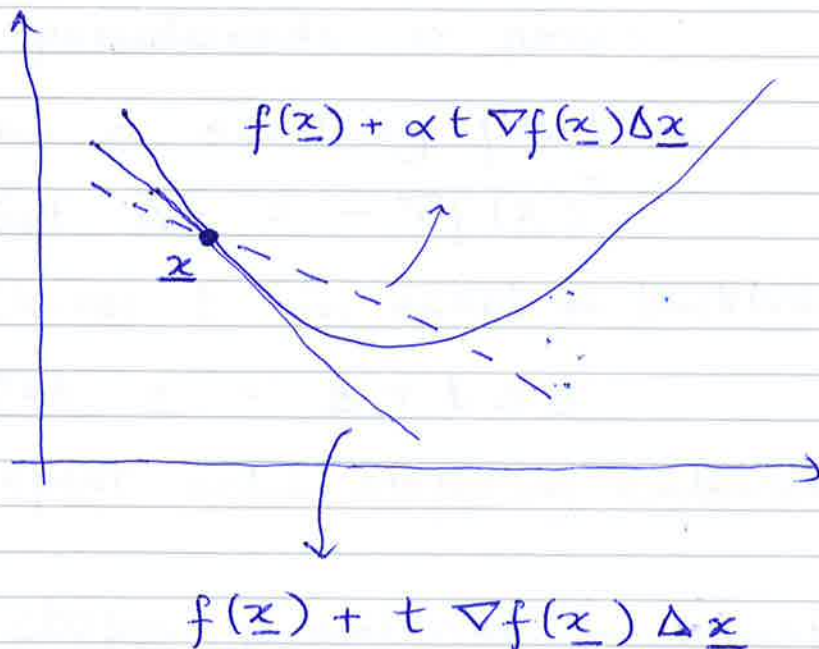 f(x̲) + α t ∇f(x̲)Δx̲
x̲
f(x̲) + t ∇f(x̲) Δx̲